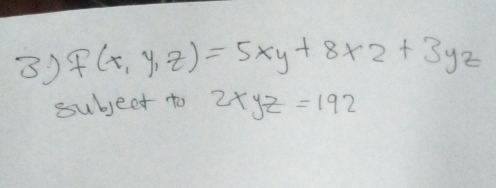 3) F(x, y, z) = 5xy + 8xz + 3yz
subject to 2xyz = 192